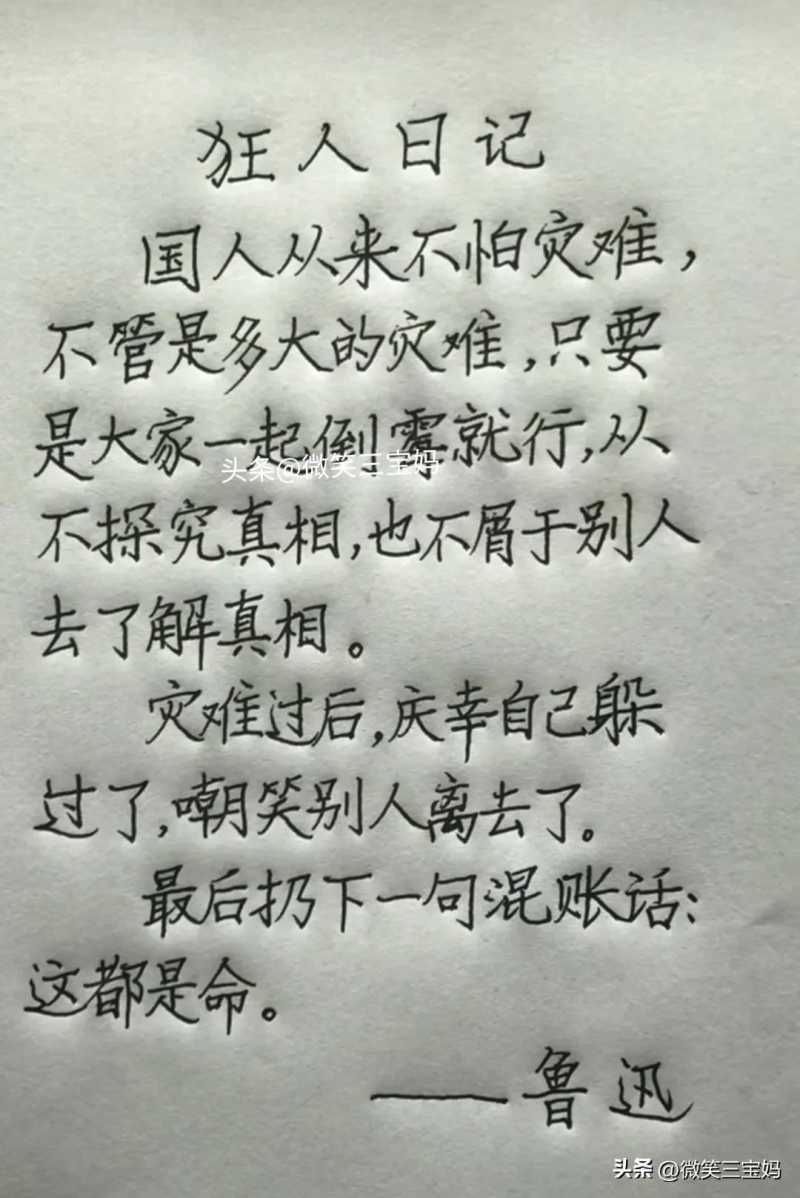 狂人日记
国人从来不怕灾难，
不管是多大的灾难，只要
是大家一起倒霉就行，从
头条@微笑三宝妈
不探究真相，也不屑于别人
去了解真相。
灾难过后，庆幸自己躲
过了，嘲笑别人离去了。
最后扔下一句混账话：
这都是命。
——鲁迅
头条 @微笑三宝妈